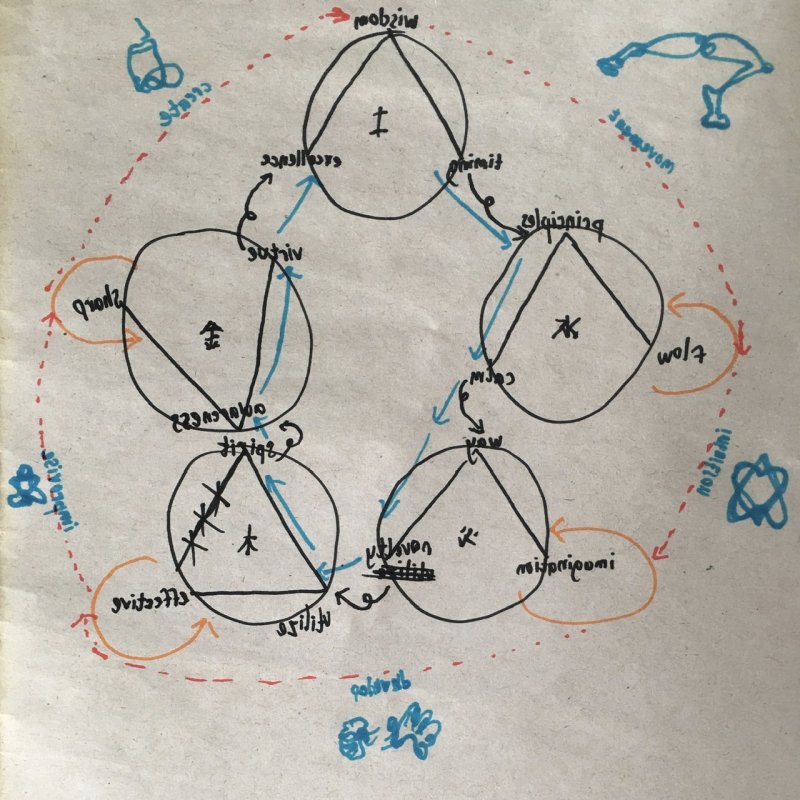 wisdom
create
movement
土
excellence
timing
principles
virtue
sharp
金
水
flow
calm
awareness
spirit
way
improvise
intuition
木
火
novelty
imagination
effective
utilize
develop